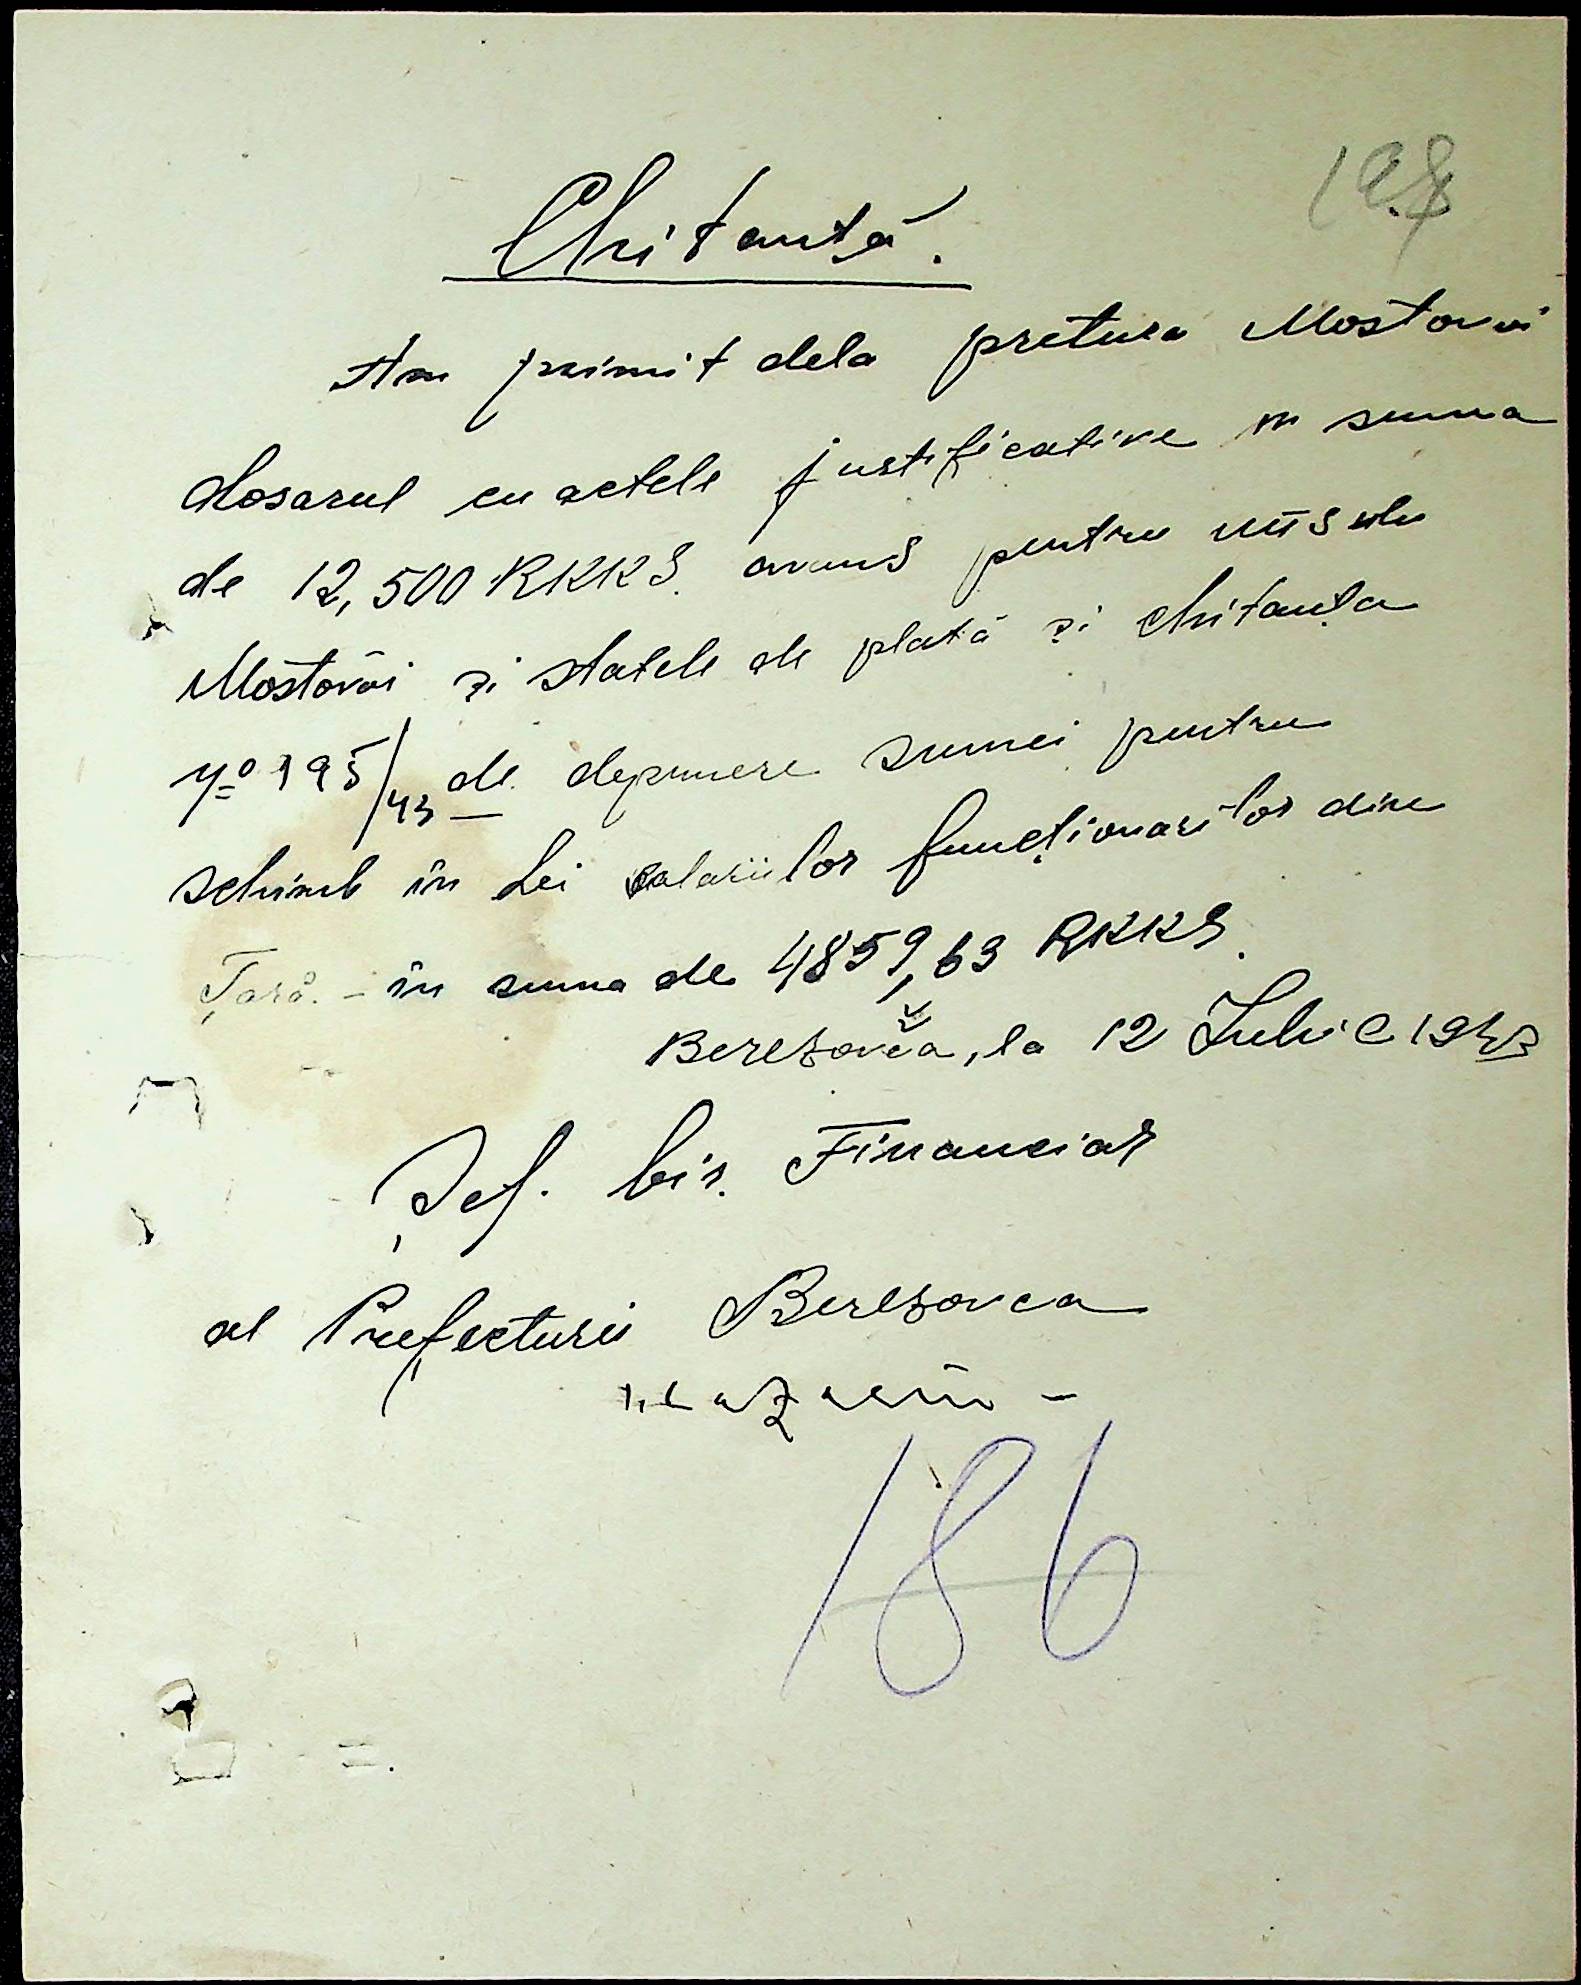 198
Chitanță.
Am primit dela pretura Mostovoi
dosarul cu actele justificative în suma
de 12,500 RKKS. avans pentru
Mostovoi și statele de plată și chitanța
No 195/43 de depunere sumei pentru
schimb în Lei salariilor funcționarilor din
Țară. - în suma de 4859,63 RKKS.
Berezovca, la 12 Iulie 1943
Șef. bir. Financiar
al Prefecturii Berezovca
186